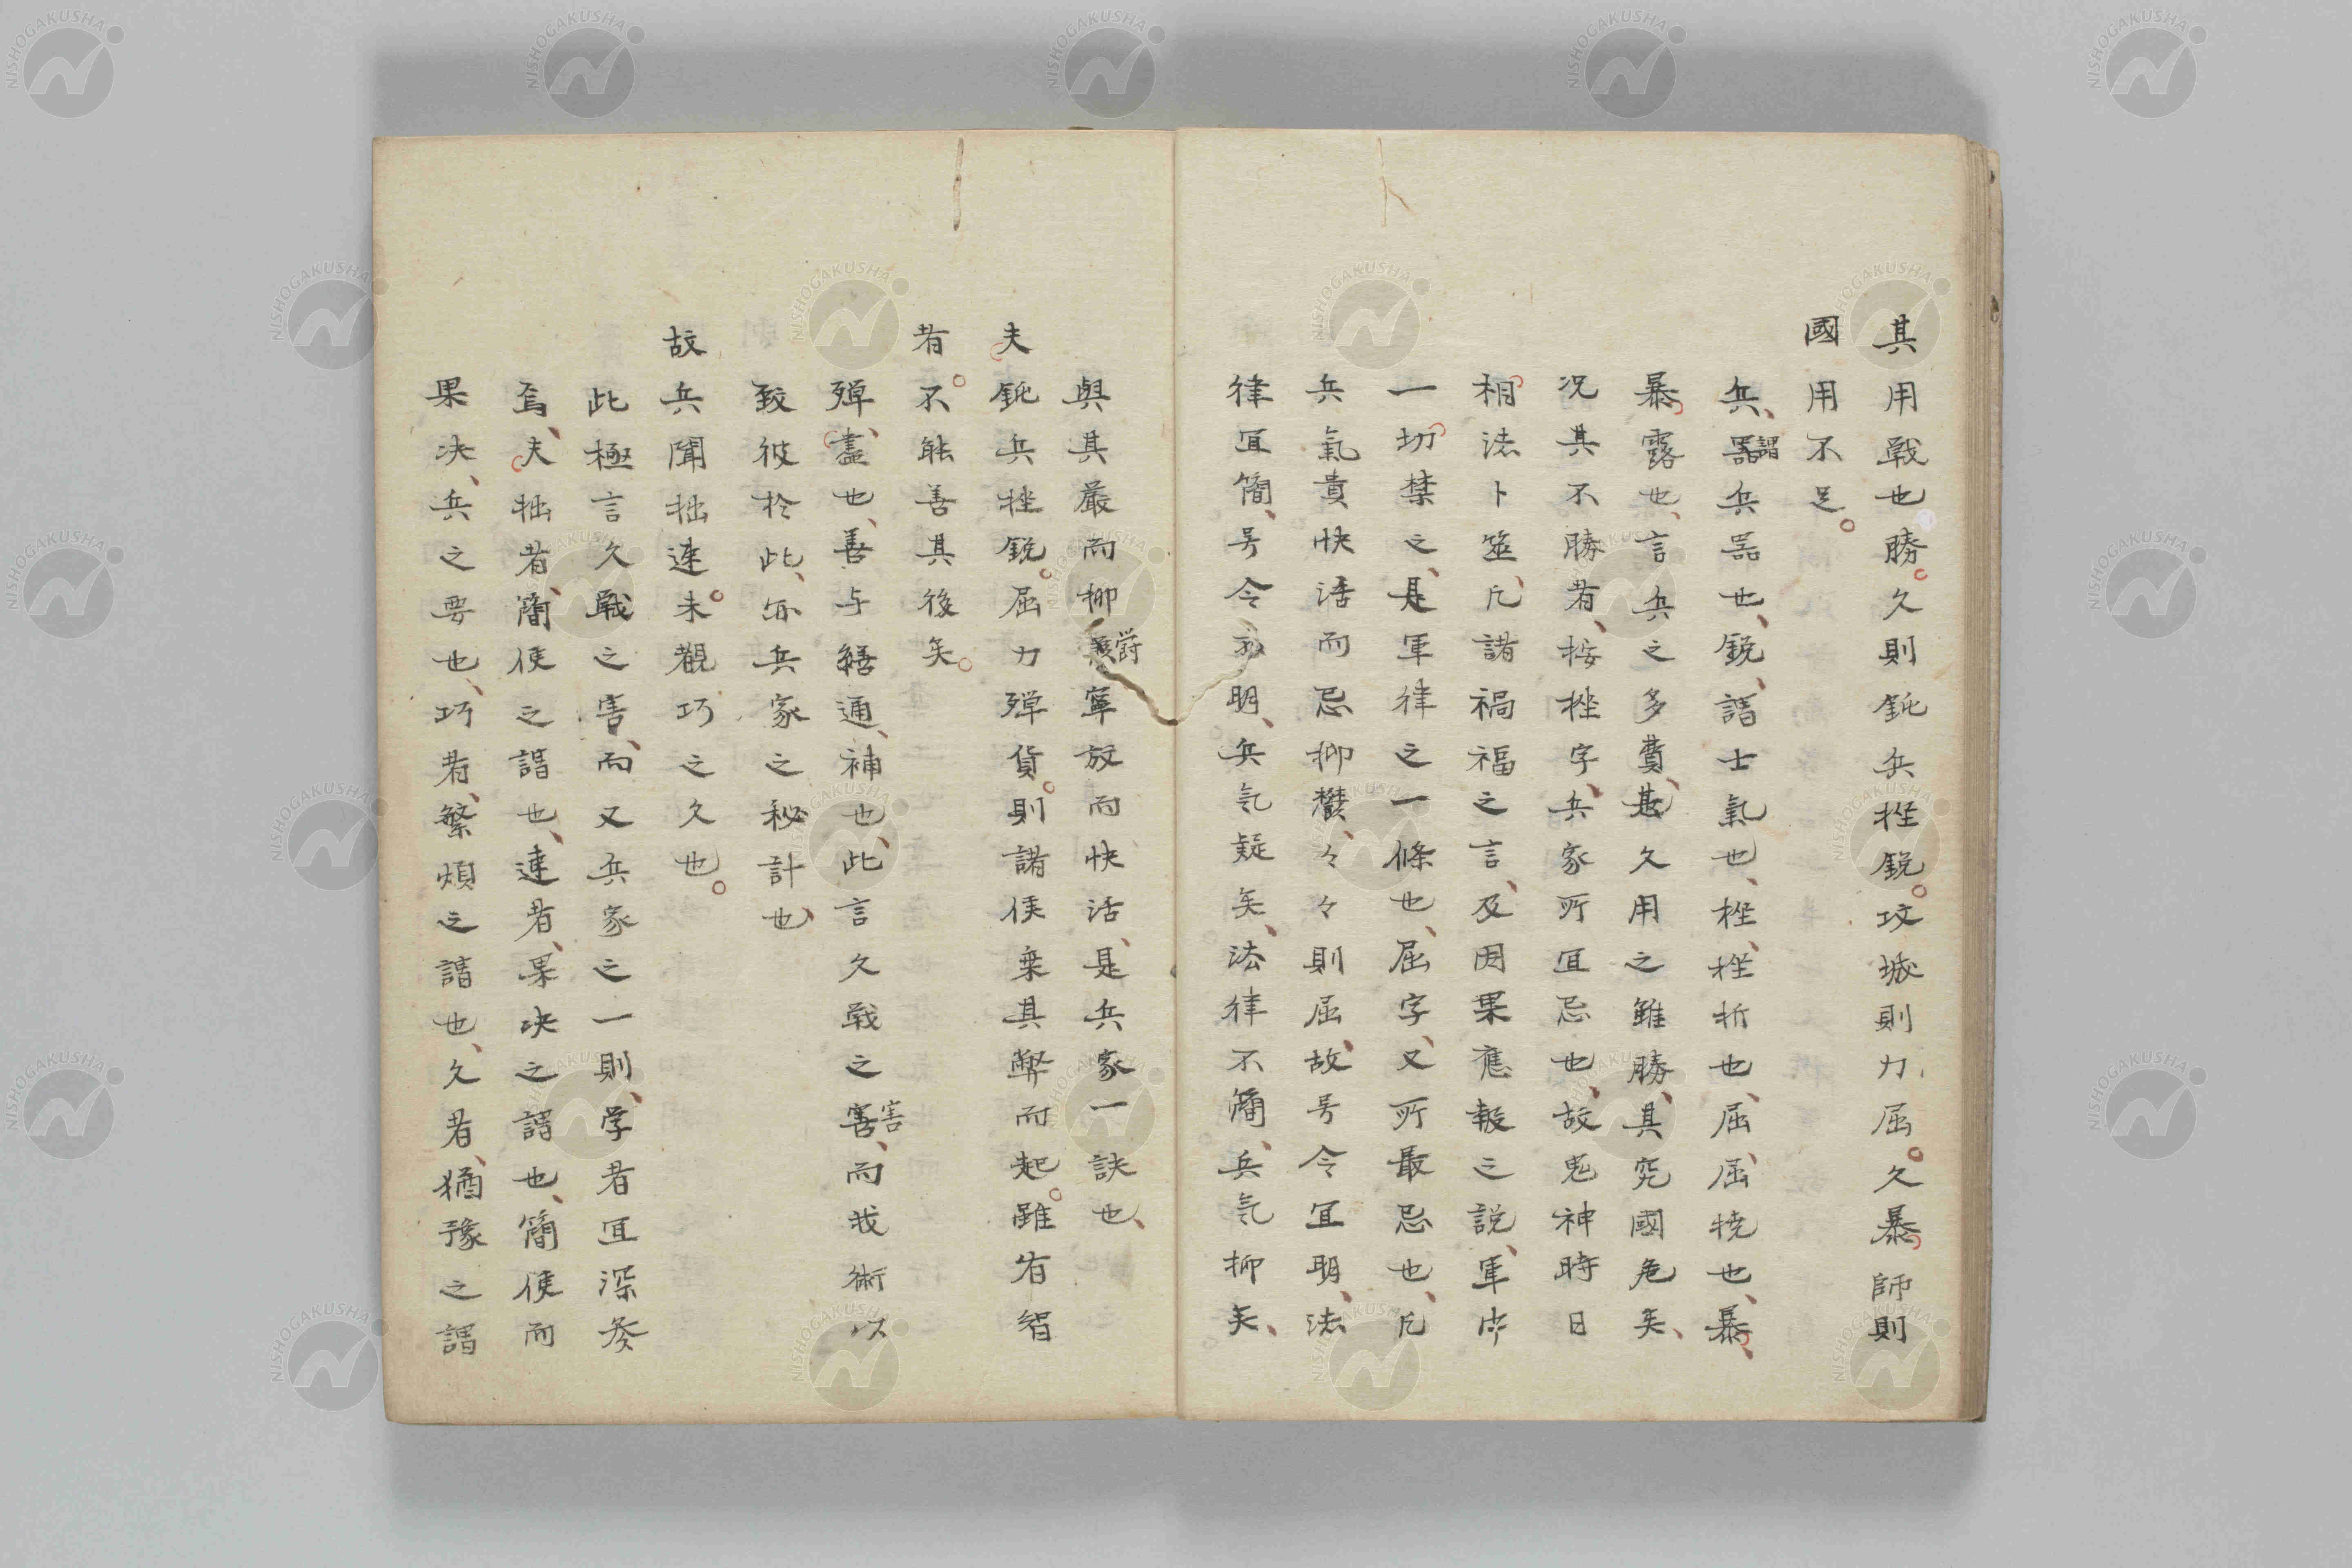 其用戰也勝久則鈍兵挫銳攻城則力屈久暴師則
國用不足
兵謂兵器也銳謂士氣也挫挫折也屈屈撓也暴
暴露也言兵之多費甚久用之雖勝其究國危矣
况其不勝者按挫字兵家所宜忌也故鬼神時日
相法卜筮凡諸禍福之言及因果應報之説軍中
一切禁之是軍律之一條也屈字又所最忌也凡
兵氣貴快活而忌抑鬱々々則屈故号令宜明法
律宜簡号令不明兵氣疑矣法律不簡兵氣抑矣
與其嚴而抑鬱寧放而快活是兵家一訣也
夫鈍兵挫銳屈力殫貨則諸侯乗其弊而起雖有智
者不能善其後矣
殫盡也善与繕通補也此言久戰之害而我術以
致彼於此亦兵家之秘計也
故兵聞拙速未觀巧之久也
此極言久戰之害而又兵家之一則学者宜深叅
焉夫拙者簡便之謂也速者果决之謂也簡便而
果决兵之要也巧者繁煩之謂也久者猶豫之謂
NISHOGAKUSHA